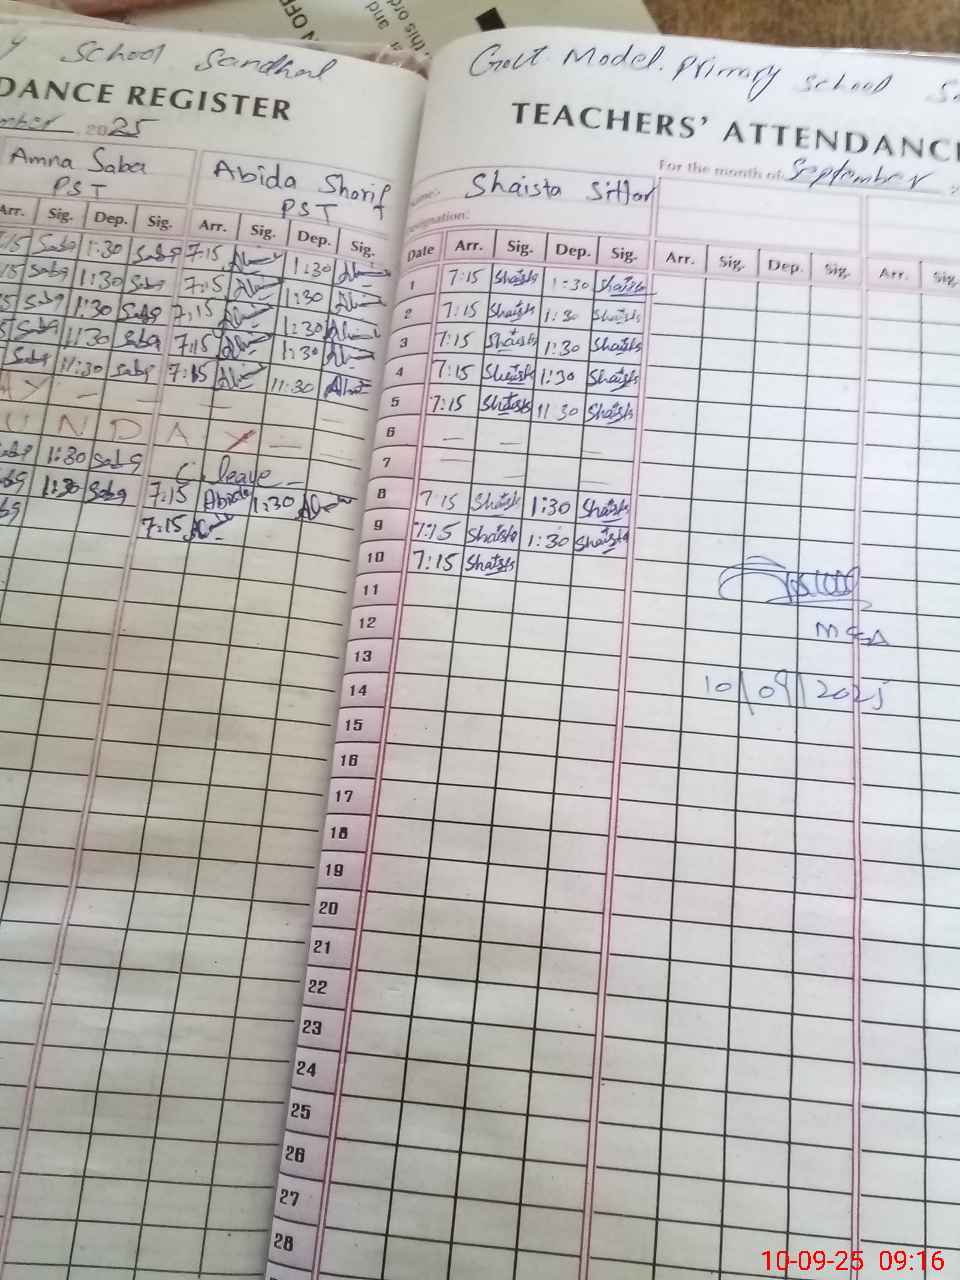 School Sandhal
DANCE REGISTER
2025
Amna Saba
PST
Abida Sharif
PST
Arr. Sig. Dep. Sig. Arr. Sig. Dep. Sig.
:15 Saba 1:30 Saba 7:15 1:30
:15 Saba 1:30 Saba 7:15 1:30
Saba 1:30 Saba 7:15 1:30
Saba 1:30 Saba 7:15 1:30
Saba 11:30 Saba 7:15 11:30
A Y — — — —
U N D A Y — —
1:30 Saba C. leave —
1:30 Saba 7:15 Abida 1:30
7:15
Govt. Model. Primary School
TEACHERS' ATTENDANC
For the month of September
Name: Shaista Sittar
Designation:
Date Arr. Sig. Dep. Sig. Arr. Sig. Dep. Sig. Arr. Sig.
1 7:15 Shaista 1:30 Shaista
2 7:15 Shaista 1:30 Shaista
3 7:15 Shaista 1:30 Shaista
4 7:15 Shaista 1:30 Shaista
5 7:15 Shaista 11:30 Shaista
6 — —
7 — —
8 7:15 Shaista 1:30 Shaista
9 7:15 Shaista 1:30 Shaista
10 7:15 Shaista
11
12 MEA
13
14 10/09/2025
15
16
17
18
19
20
21
22
23
24
25
26
27
28
10-09-25 09:16